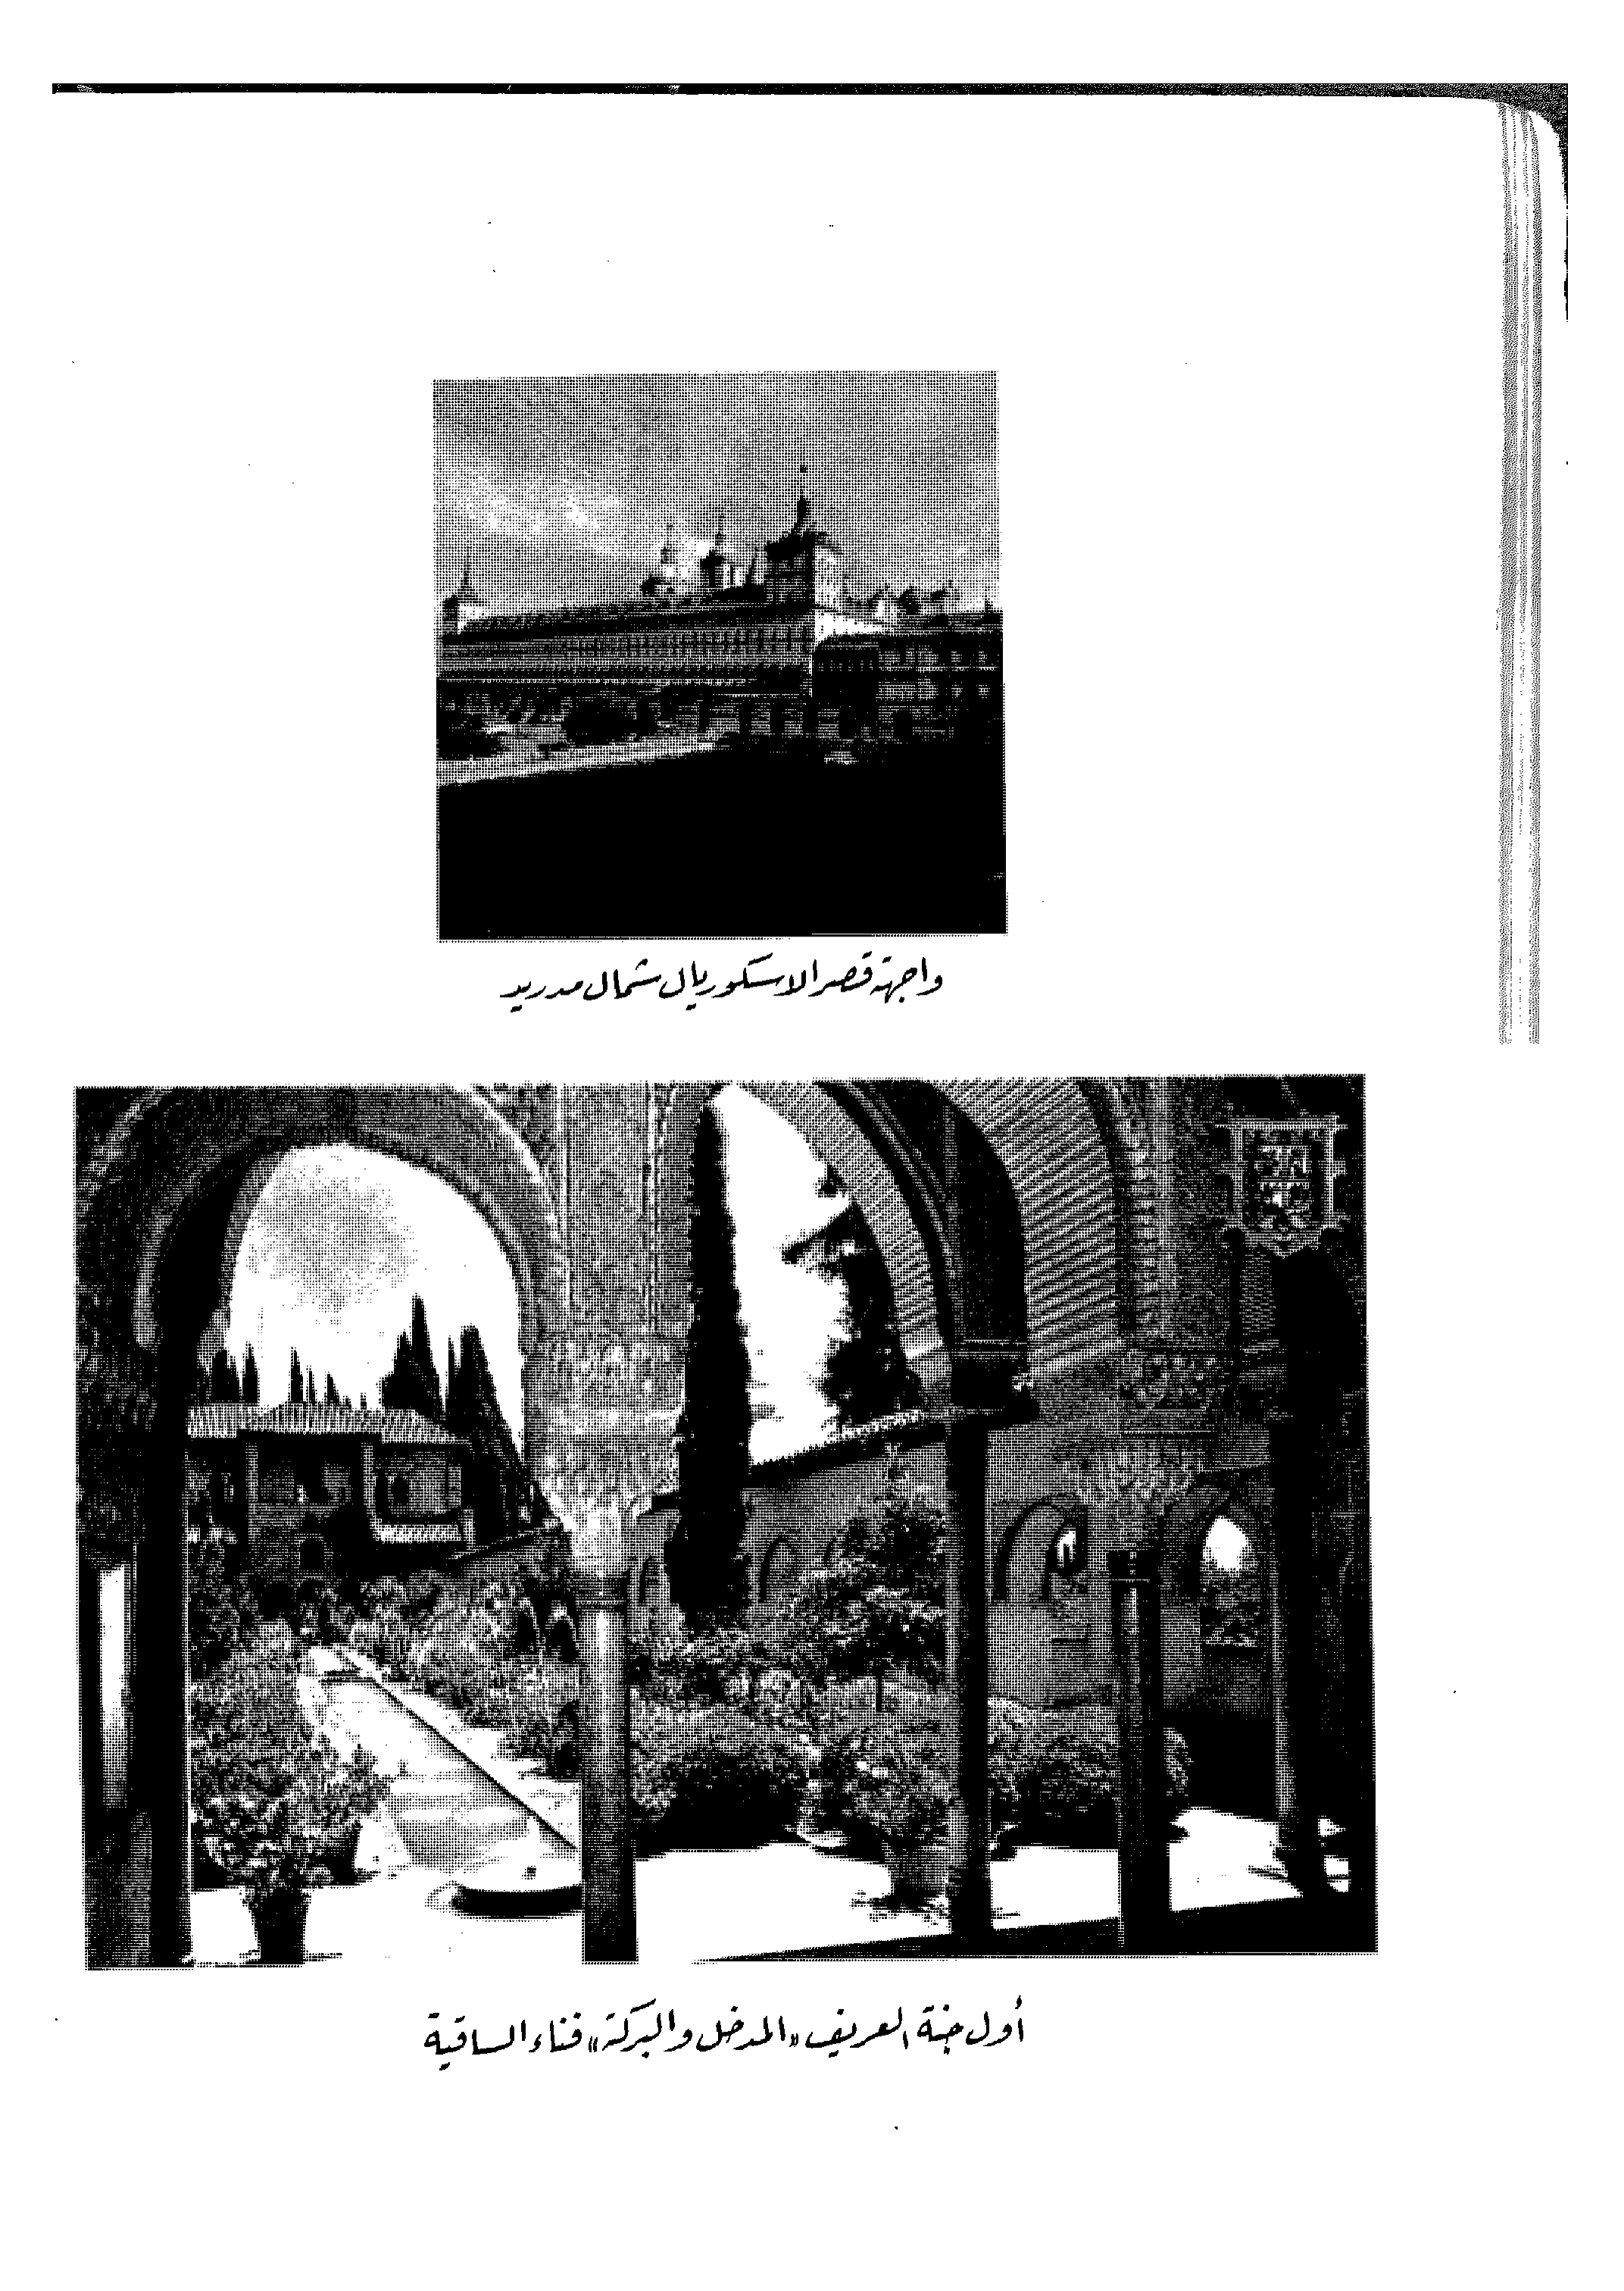 واجهة قصر الاسكوريال شمال مدريد
أول جنة العريف «المدخل والبركة» فناء الساقية